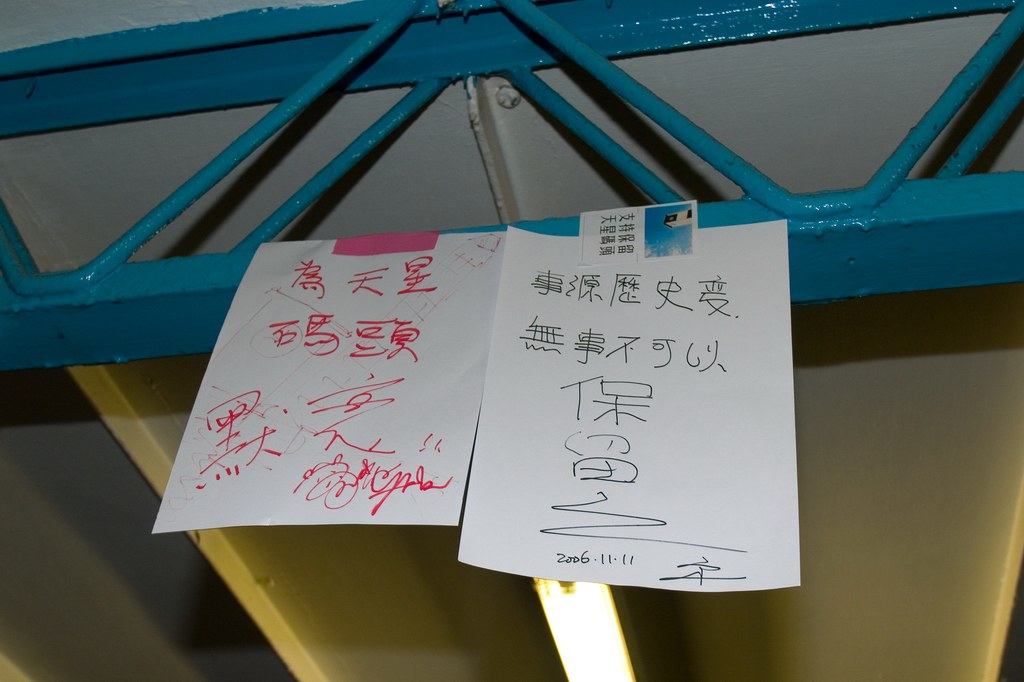 為天星
碼頭
默哀!!
支持保留
天星碼頭
事源歷史变.
無事不可以
保
留
之
2006.11.11